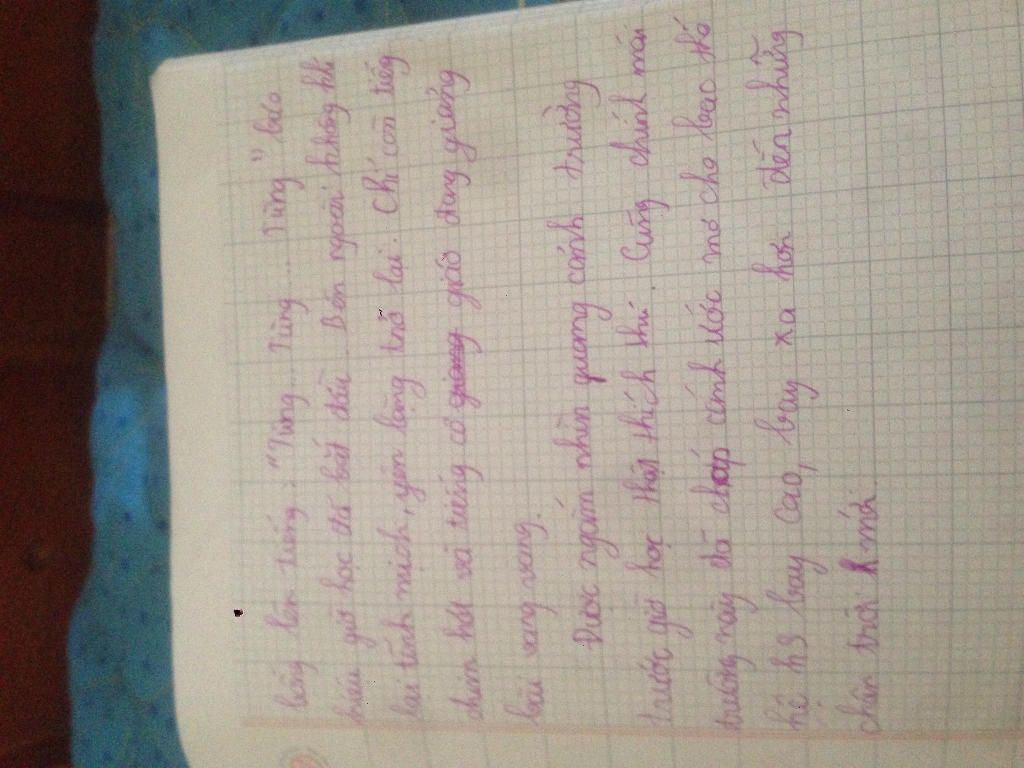 bỗng lên tiếng: "Tùng... Tùng... Tùng" báo
hiệu giờ học đã bắt đầu. Bên ngoài không khí
lại tĩnh mịch, yên lặng trở lại. Chỉ còn tiếng
chim hót và tiếng cô giáo đang giảng
bài vang vang.
Được ngắm nhìn quang cảnh trường
trước giờ học thật thích thú. Cũng chính mái
trường này đã chắp cánh ước mơ cho bao thế
hệ hs bay cao, bay xa hơn đến những
chân trời mới.